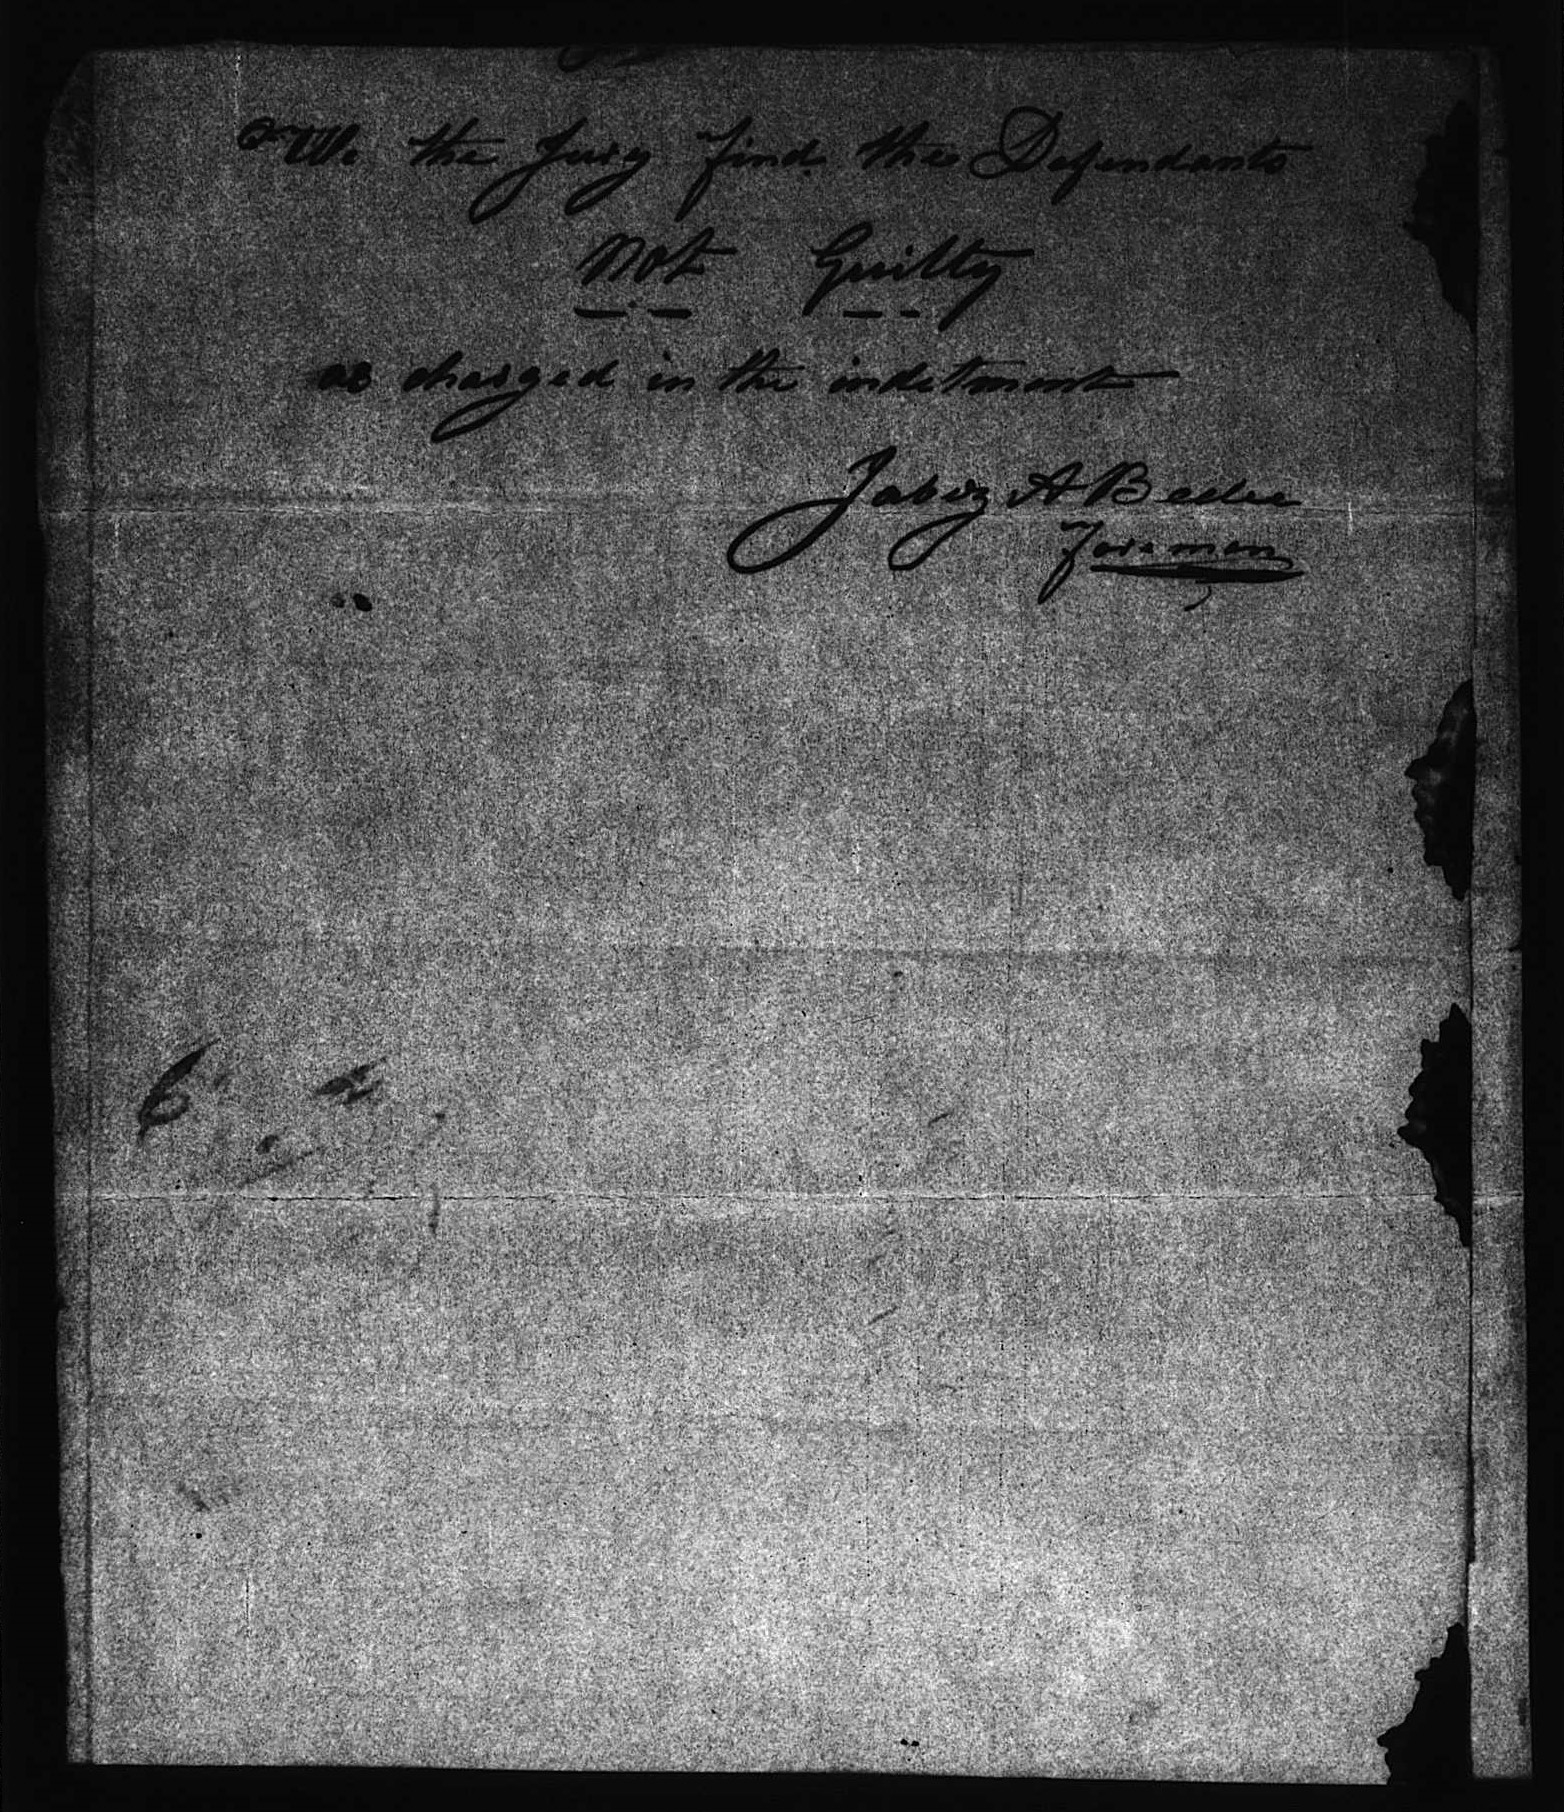 We the Jury find the Defendants
Not Guilty
as charged in the indetment
Jabez A
Foreman